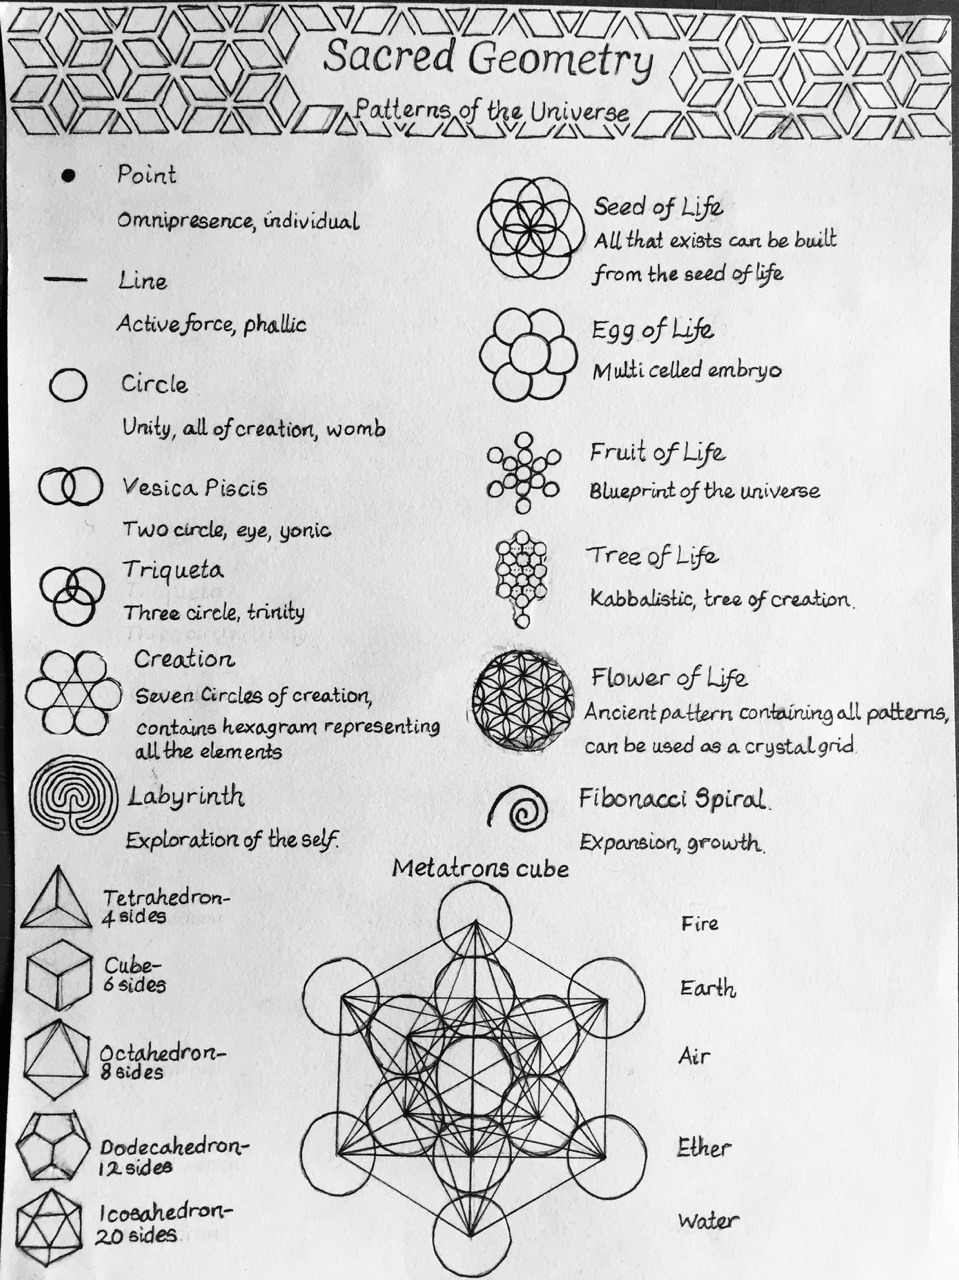 Sacred Geometry
Patterns of the Universe
Point
Omnipresence, individual
Line
Active force, phallic
Circle
Unity, all of creation, womb
Vesica Piscis
Two circle, eye, yonic
Triqueta
Three circle, trinity
Creation
Seven Circles of creation,
contains hexagram representing
all the elements
Labyrinth
Exploration of the self.
Seed of Life
All that exists can be built
from the seed of life
Egg of Life
Multi celled embryo
Fruit of Life
Blueprint of the universe
Tree of Life
Kabbalistic, tree of creation.
Flower of Life
Ancient pattern containing all patterns,
can be used as a crystal grid.
Fibonacci Spiral.
Expansion, growth.
Metatrons cube
Tetrahedron-
4 sides
Cube-
6 sides
Octahedron-
8 sides
Dodecahedron-
12 sides
Icosahedron-
20 sides.
Fire
Earth
Air
Ether
Water